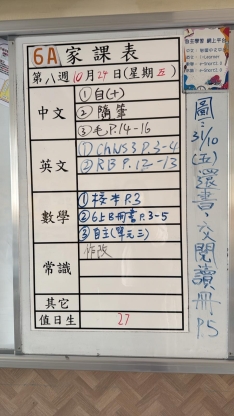 6A 家課表
第八週 10月24日(星期五)
中文
①自(十)
②隨筆
③毛P.14-16
英文
①ChNS3 P.3-4
②RB P.12-13
數學
①接本P.3
②6上B冊書P.3-5
③自主(單元三)
常識
作改
其它
值日生
27
圖:31/10(五)還書、交閱讀冊P.5
自主學習 網上平台